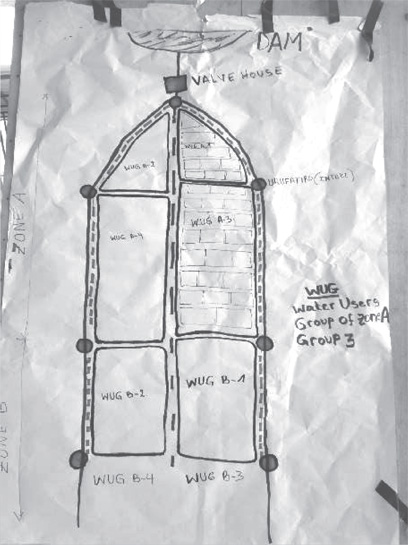 DAM
VALVE HOUSE
WUG A-2
WUG A-1
(INTAKE)
WUG A-3
WUG A-4
ZONE A
WUG
Water Users
Group of zone A
Group 3
WUG B-2
WUG B-1
ZONE B
WUG B-4
WUG B-3